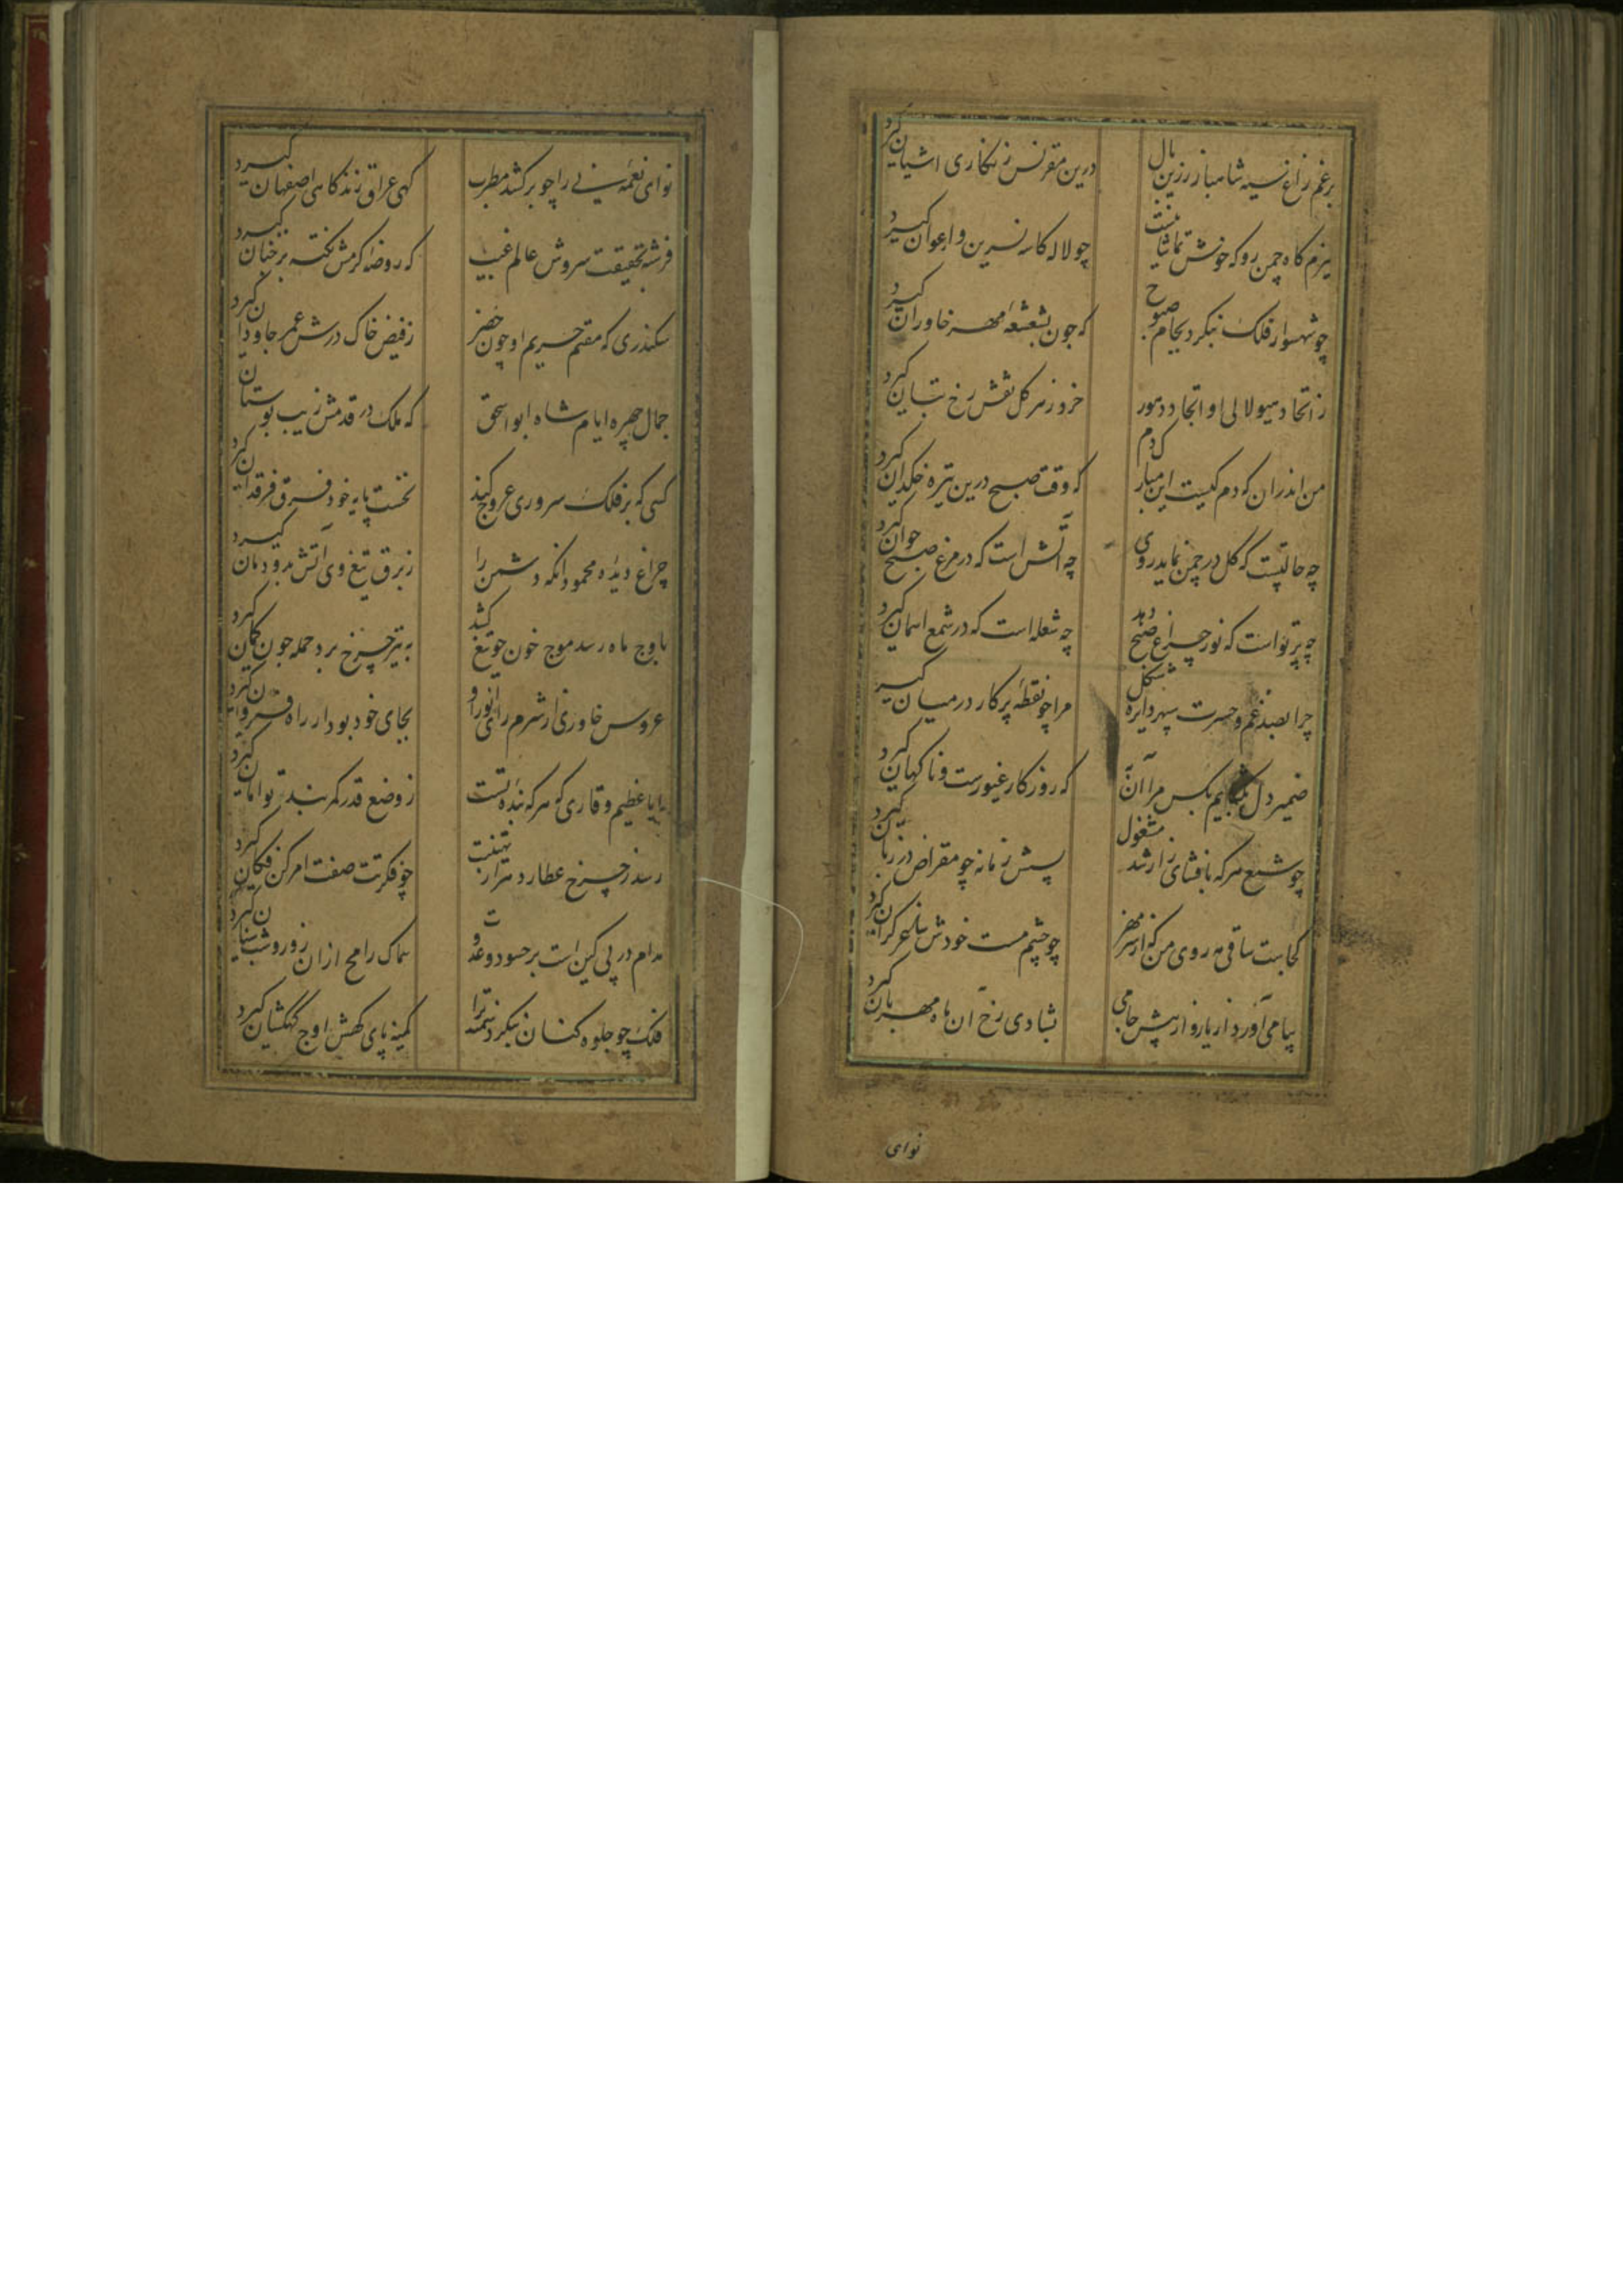 برغم زاغ سیه شاهباز زرین بال درین مقرنس زنکاری اشیان کیرد
ببزم کاه چمن رو که خوش تماشائیست چو لاله کاسه نسرین و ارغوان کیرد
چو شهسوار فلک بنکرد بجام صبوح که چون بشعشعهٔ مهر خاوران کیرد
ز اتحاد هیولا لی او اتحاد صور خرد ز هر کل نقش رخ بتان کیرد
من اندران که دم کیست این مبارک دم که وقت صبح درین تیره خاکدان کیرد
چه حالتیست که کل در چمن نماید روی چه آتش است که در مرغ صبح خوان کیرد
چه پرتو است که نور چراغ صبح دهد چه شعله است که در شمع اسمان کیرد
چرا بصد غم و حسرت سپهر دایره شکل مرا چو نقطهٔ پرکار در میان کیرد
ضمیر دل نکشایم بکس مرا آن به که روزکار غیورست و ناکهان کیرد
چو شمع هر که بافشای راز شد مشغول بسش زمانه چو مقراض در زبان کیرد
کجاست ساقی مه روی من که از سر مهر چو چشم مست خودش ساغر کران کیرد
پیامی آورد از یار و از پیش جامی بشادی رخ آن ماه مهربان کیرد
نوای
نوای نغمهٔ نی را چو برکشد مطرب کهی عراق زند کاهی اصفهان کیرد
فرشته حقیقت سروش عالم غیب که روضهٔ کرمش نکته بر جنان کیرد
سکندری که مقیم حریم او چون خضر ز فیض خاک درش عمر جاودان کیرد
جمال چهره ایام شاه ابو اسحق که ملک در قدمش زیب بوستان کیرد
کسی که بر فلک سروری عروج کند نخست پایه خود فرق فرقدان کیرد
چراغ دیدهٔ محمود انکه دشمن را ز برق تیغ وی آتش بدودمان کیرد
باوج ماه رسد موج خون چو تیغ کشد به تیر چرخ برد حمله چون کمان کیرد
عروس خاوری از شرم رای انور او بجای خود بود ار راه قیروان کیرد
ایا عظیم وقاری که هر که بندهٔ تست ز وضع قدر کمربند توامان کیرد
رسد ز چرخ عطارد هزار تهنیتت چو فکرتت صفت امر کن فکان کیرد
مدام در پی کین است بر حسود و عدوت سماک رامح ازان روز و شب سنان کیرد
فلک چو جلوه کنان بنکرد سمند ترا کمینه پای کهش اوج کهکشان کیرد